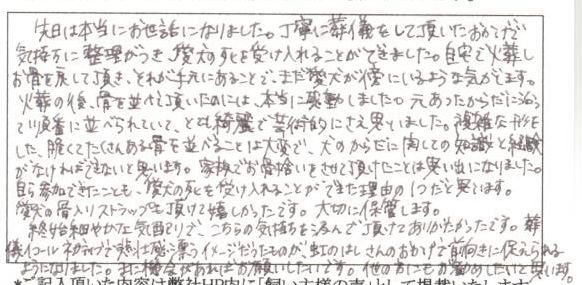 先日は本当にお世話になりました。丁寧に葬儀をして頂いたおかげで
気持ちに整理がつき、愛犬の死を受け入れることができました。自宅で火葬し
お骨を戻して頂き、それが手元にあることで、まだ愛犬が傍にいるような気がします。
火葬の後、骨を並べて頂いたのには、本当に感動しました。元あったからだに沿っ
て順番に並べられていて、とても綺麗で芸術的にさえ思いました。複雑な形を
した、脆くてたくさんある骨を並べることは大変で、犬のからだに関しての知識と経験
がなければできないと思います。家族でお骨拾いをさせて頂けたことは思い出になりました。
自ら参加できたことも、愛犬の死を受け入れることができた理由の1つだと思います。
愛犬の骨入りストラップも頂けて嬉しかったです。大切に保管します。
終始細やかな気配りで、こちらの気持ちを汲んで頂けてありがたかったです。葬
儀イコールネガティブで悲壮感漂うイメージだったものが、虹のはしさんのおかげで前向きに捉えられる
ようになりました。また機会があればお願いしたいです。他の方にもお勧めしたいと思います。
*ご記入頂いた内容は弊社HP内に「飼い主様の声」として掲載いたします